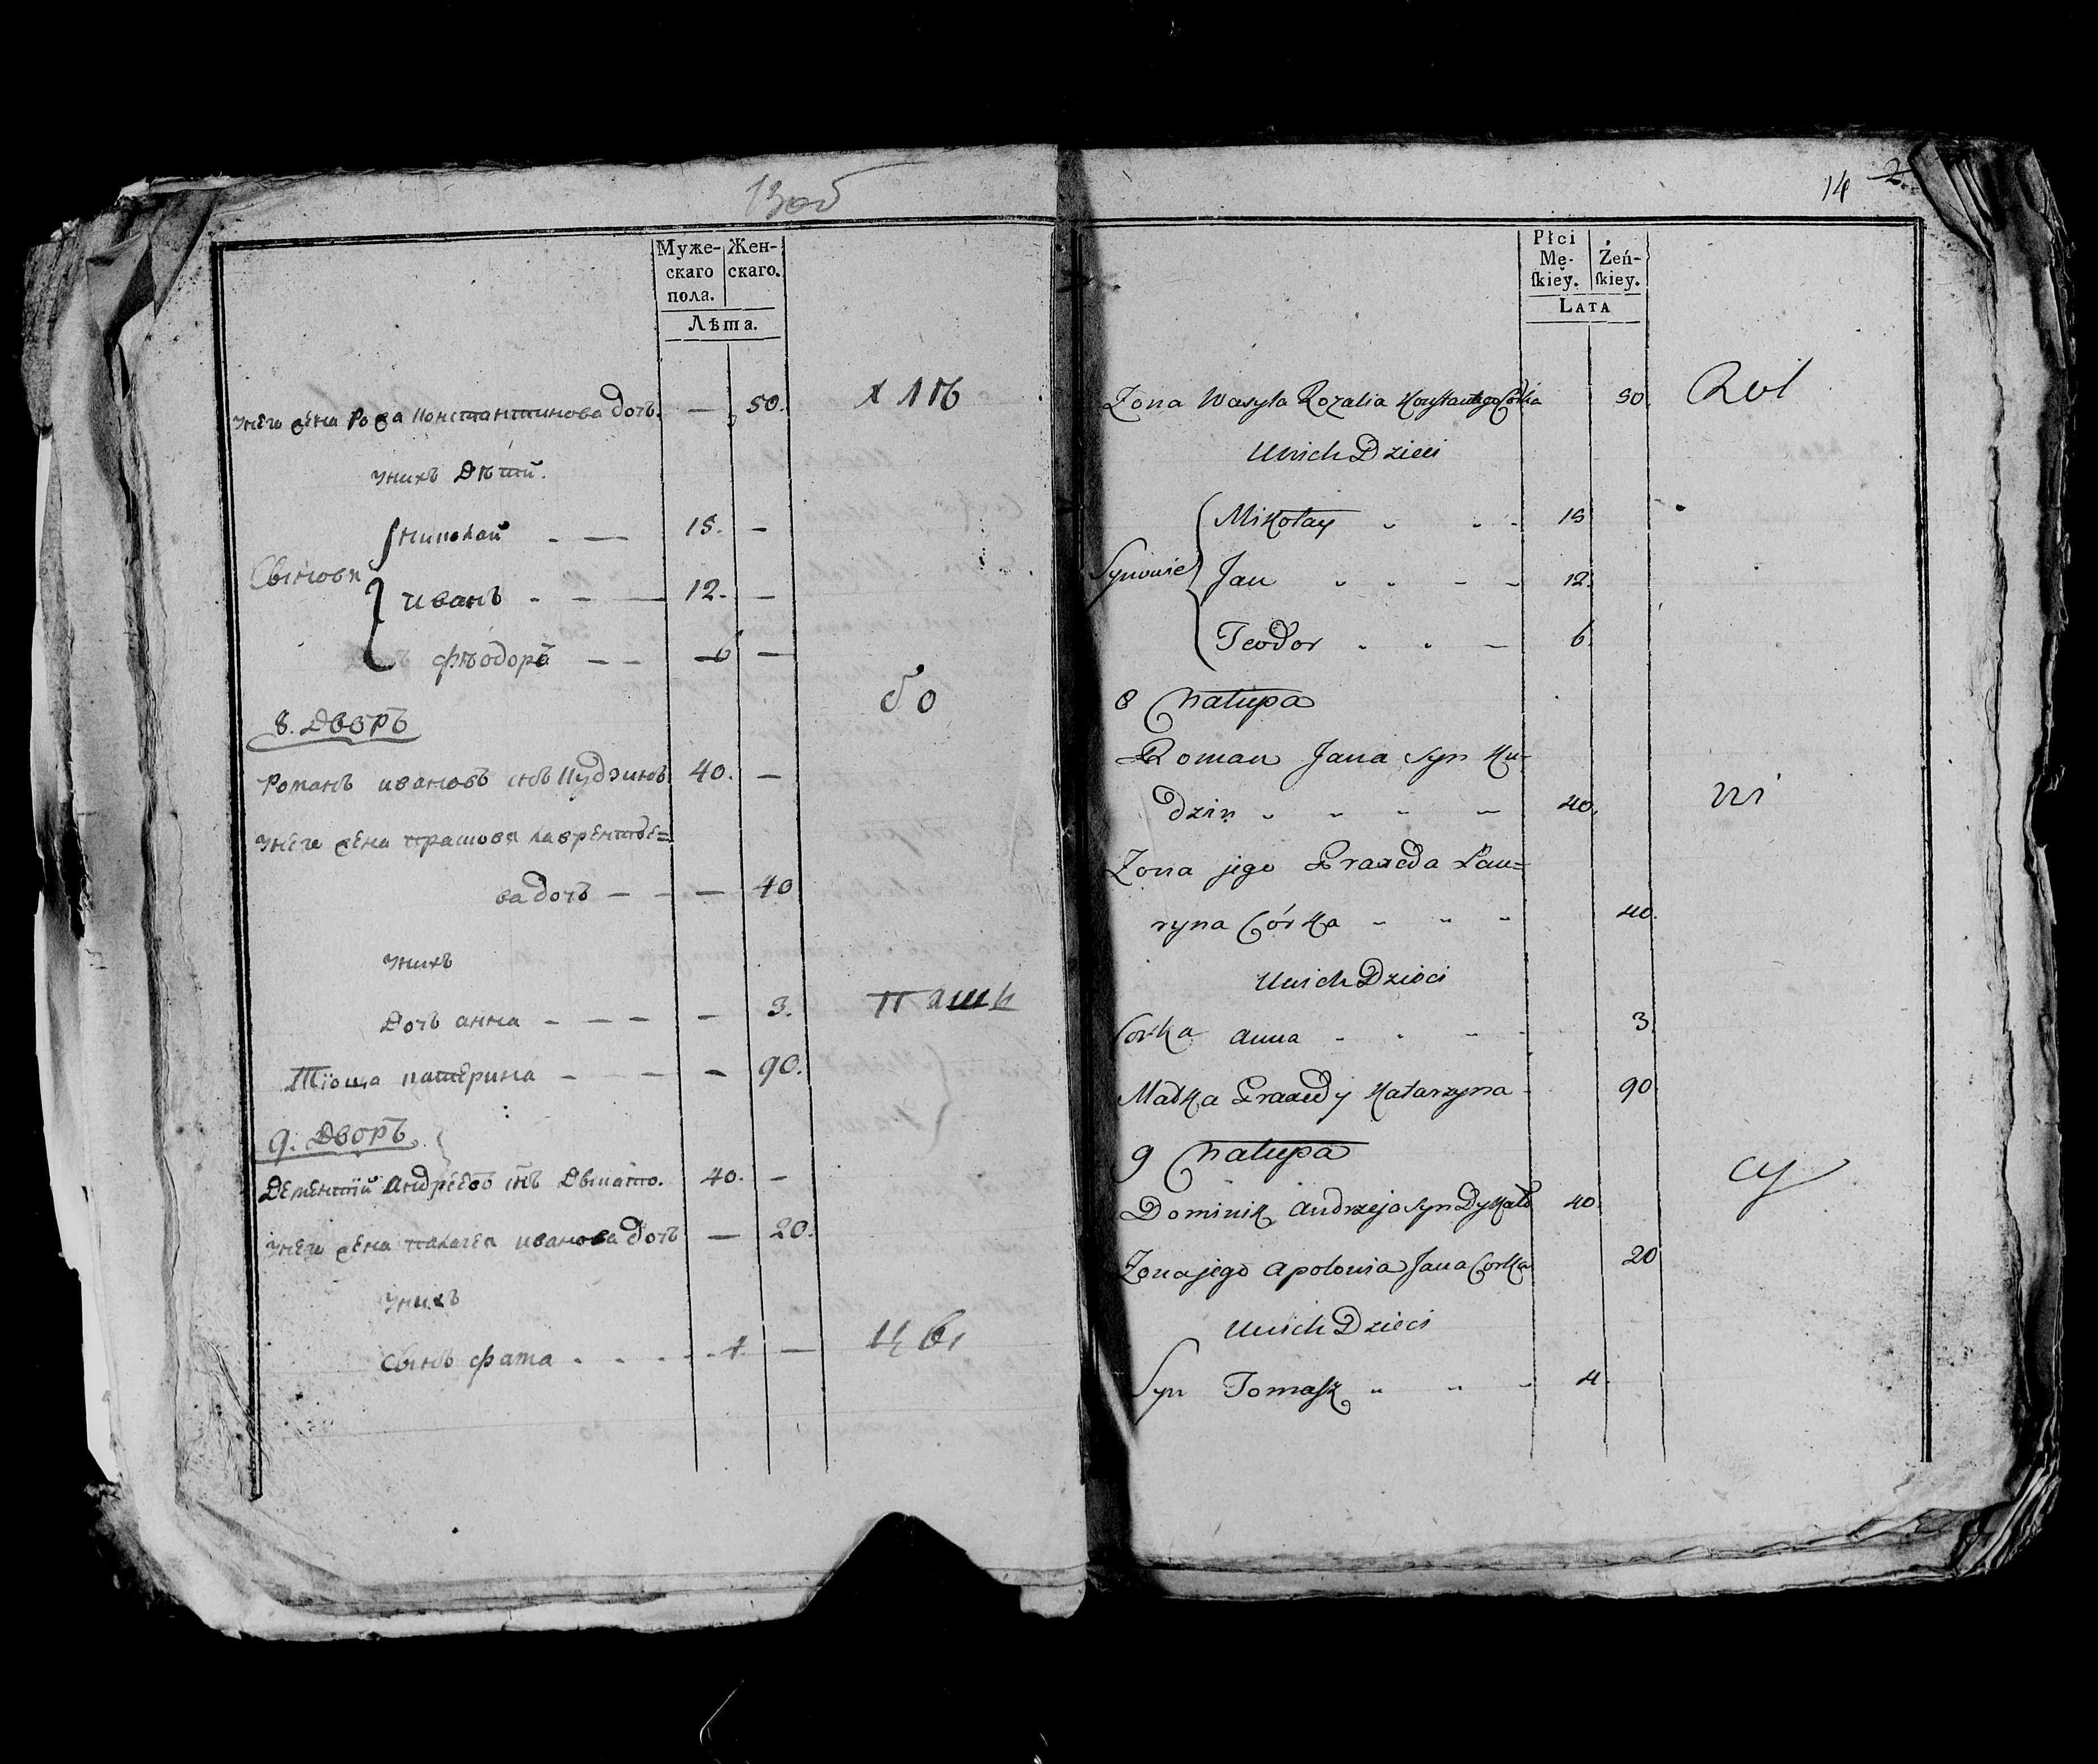 13об
Муже-
скаго
пола.
Жен-
скаго.
Лѣта.
унего жена Роза Константинова дочь. — 50.
хлѣб
унихъ Дѣти.
Сыновя
Николай - — 15. —
Иванъ - - — 12. —
Фѣодоръ — — 6 —
бо
8. Дворъ
Романъ Ивановъ снъ Кудзинъ 40. —
унего жена Прасковя Лавренте=
ва дочь — - — 40
унихъ
Дочь Анна - — - — 3.
паши
Тіоща Катерина - — - — 90.
9. Дворъ
Дементій Андреевъ снъ 40. —
унего жена Палагея Иванова дочь — 20.
унихъ
Сынъ Фама . . . . 4. —
14 2.
Płci
Mę-
ſkiey.
Żeń-
ſkiey.
Lata
Zona Wasyla Rozalia Konstantego Córka 50.
Rol
Unich Dzieci
Synowie
Mikołay 15
Jan 12.
Teodor 6.
8 Chałupa
Roman Jana syn Ku-
dzin 40.
ni
Zona jego Praxeda Lau=
ryna Córka 40.
Unich Dzieci
Corka Anna 3.
Matka Praxedy Katarzyna - 90
9 Chałupa
cy
Dominik Andrzeja syn 40.
Zona jego Apolonia Jana Corka 20
Unich Dzieci
Syn Tomasz 4.